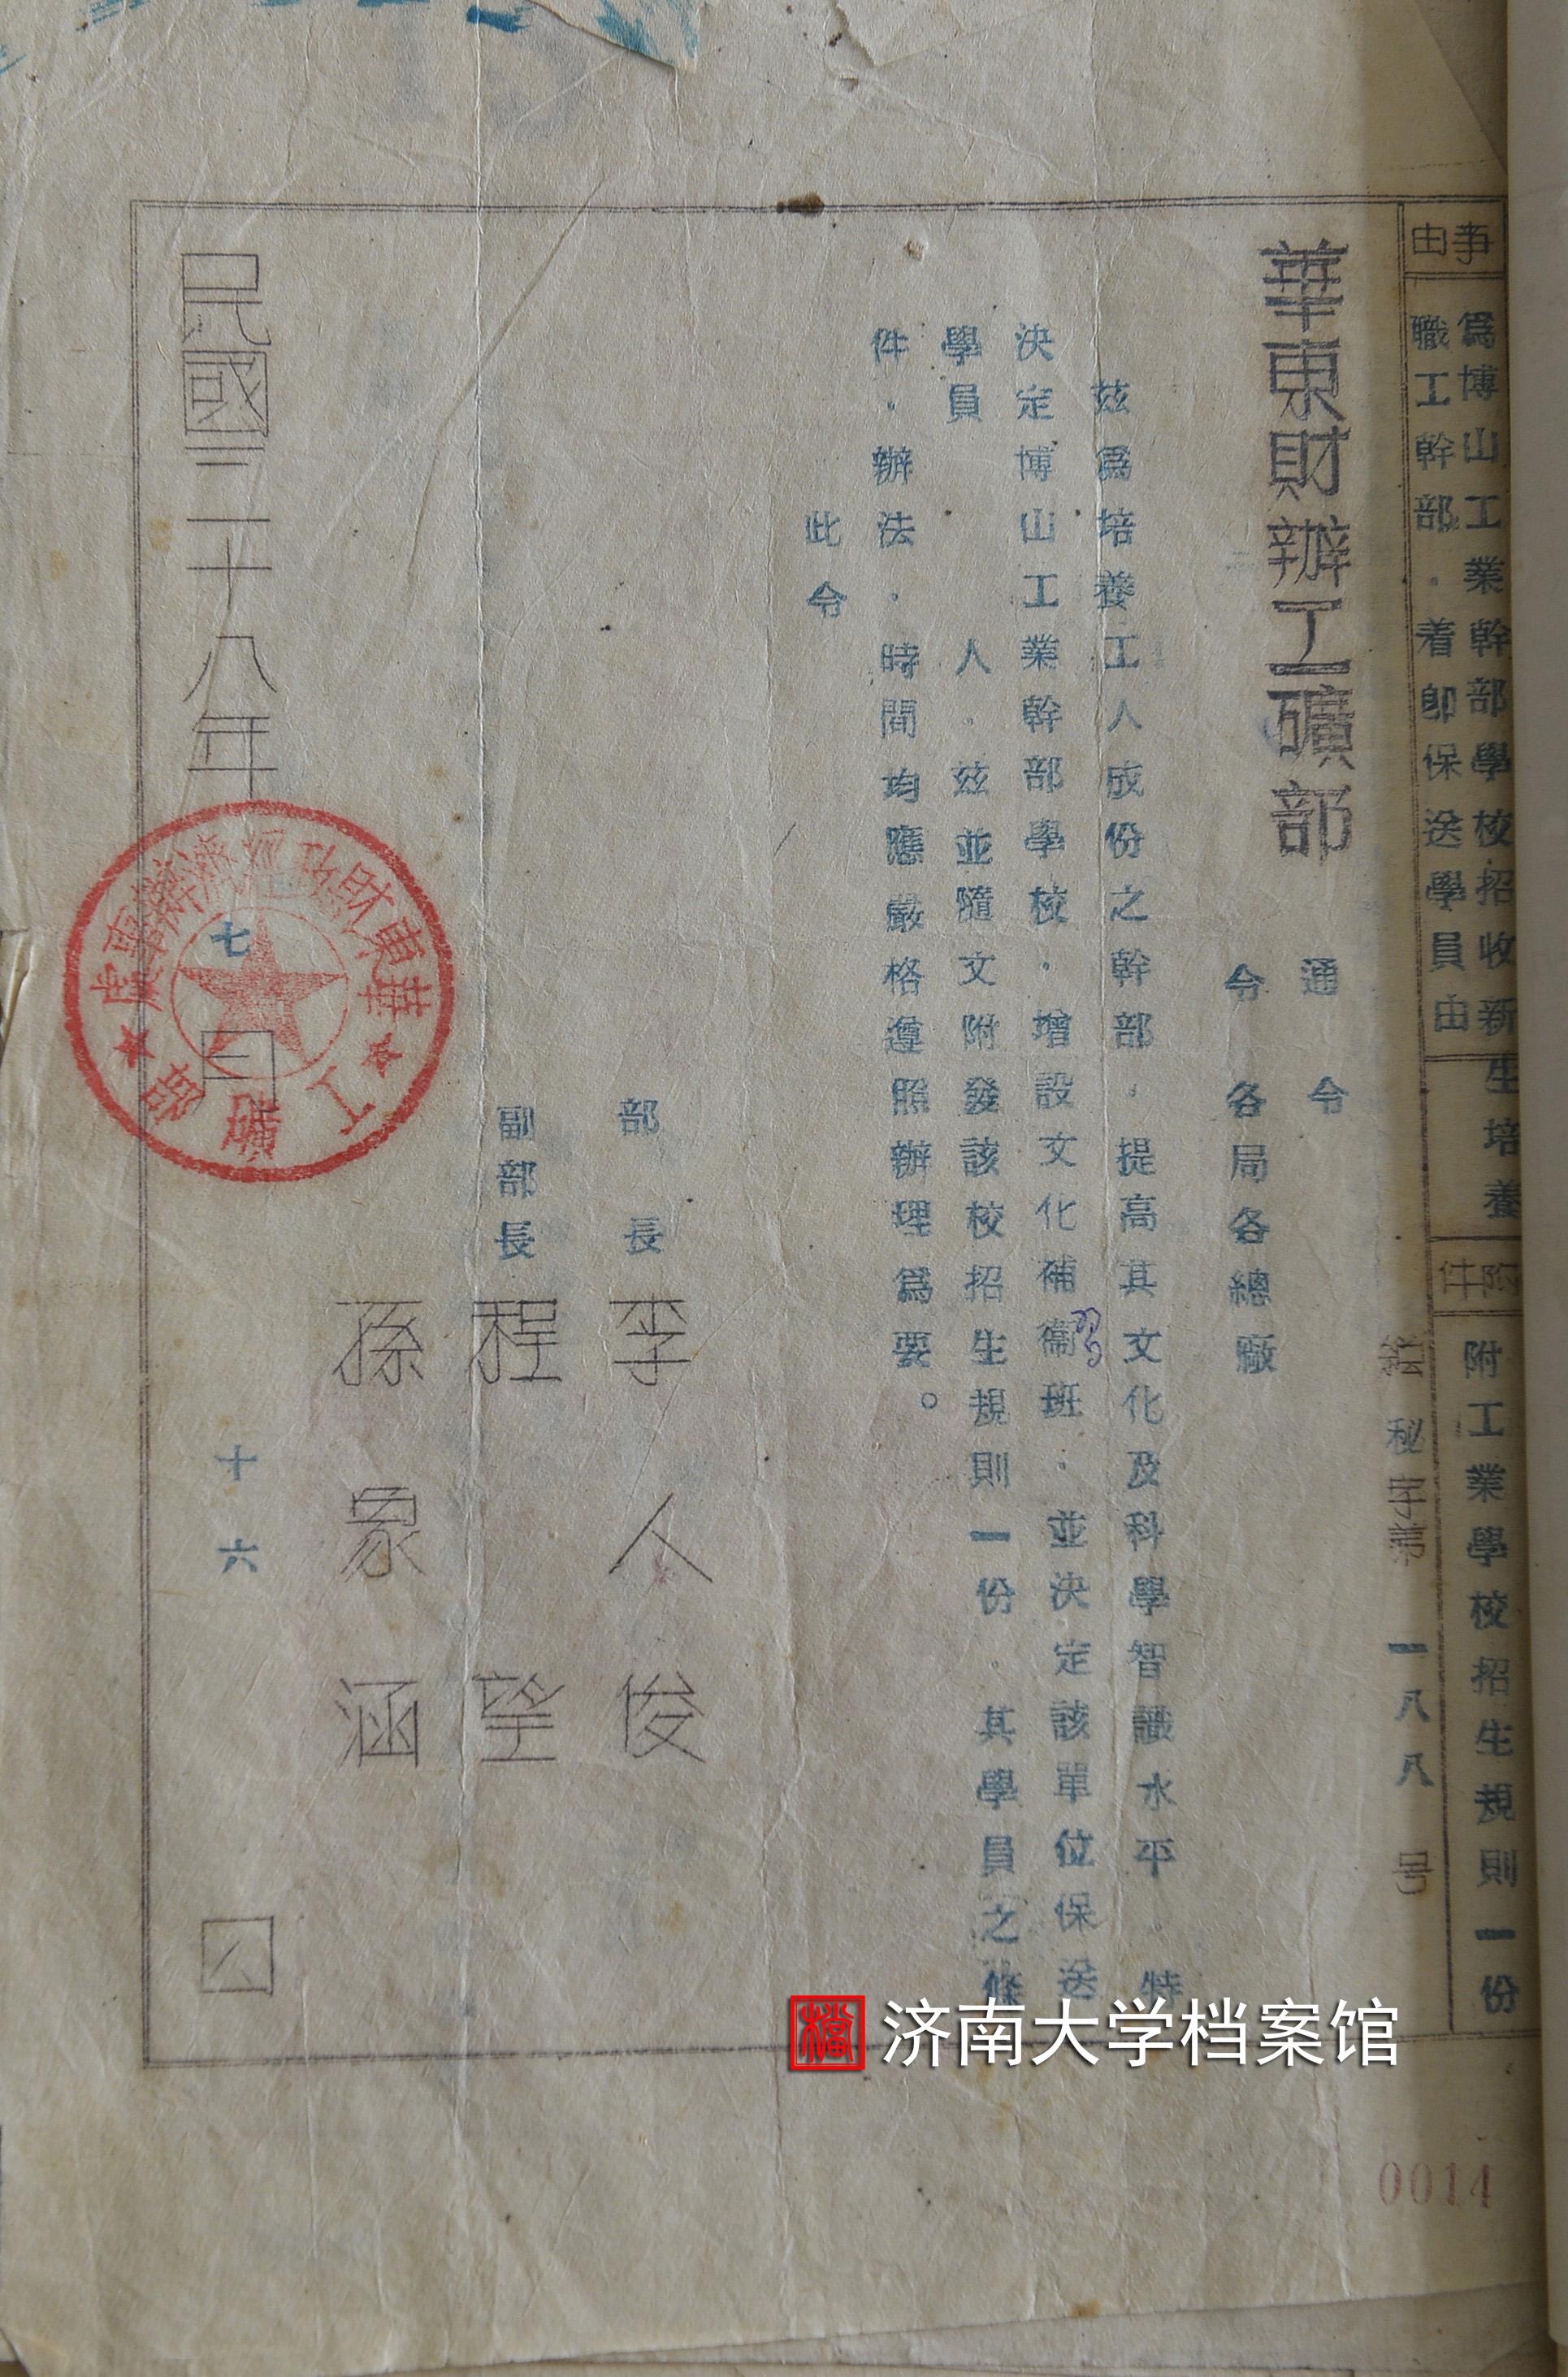 事由
爲博山工業幹部學校招收新生培養
職工幹部．着即保送學員由
附件
附工業學校招生規則一份
秘字第一八八号
華東財辦工礦部
通令
令各局各總廠
茲爲培養工人成份之幹部．提高其文化及科學智識水平．特
決定博山工業幹部學校．增設文化補衛班．並決定該單位保送
學員　　人．茲並隨文附發該校招生規則一份．其學員之條
件．辦法．時間均應嚴格遵照辦理爲要。
此令
部長　李人俊
副部長　程望
孫象涵
民國三十八年七月十六日
華東財政經濟辦事處
工礦部
济南大学档案馆
檔
0014